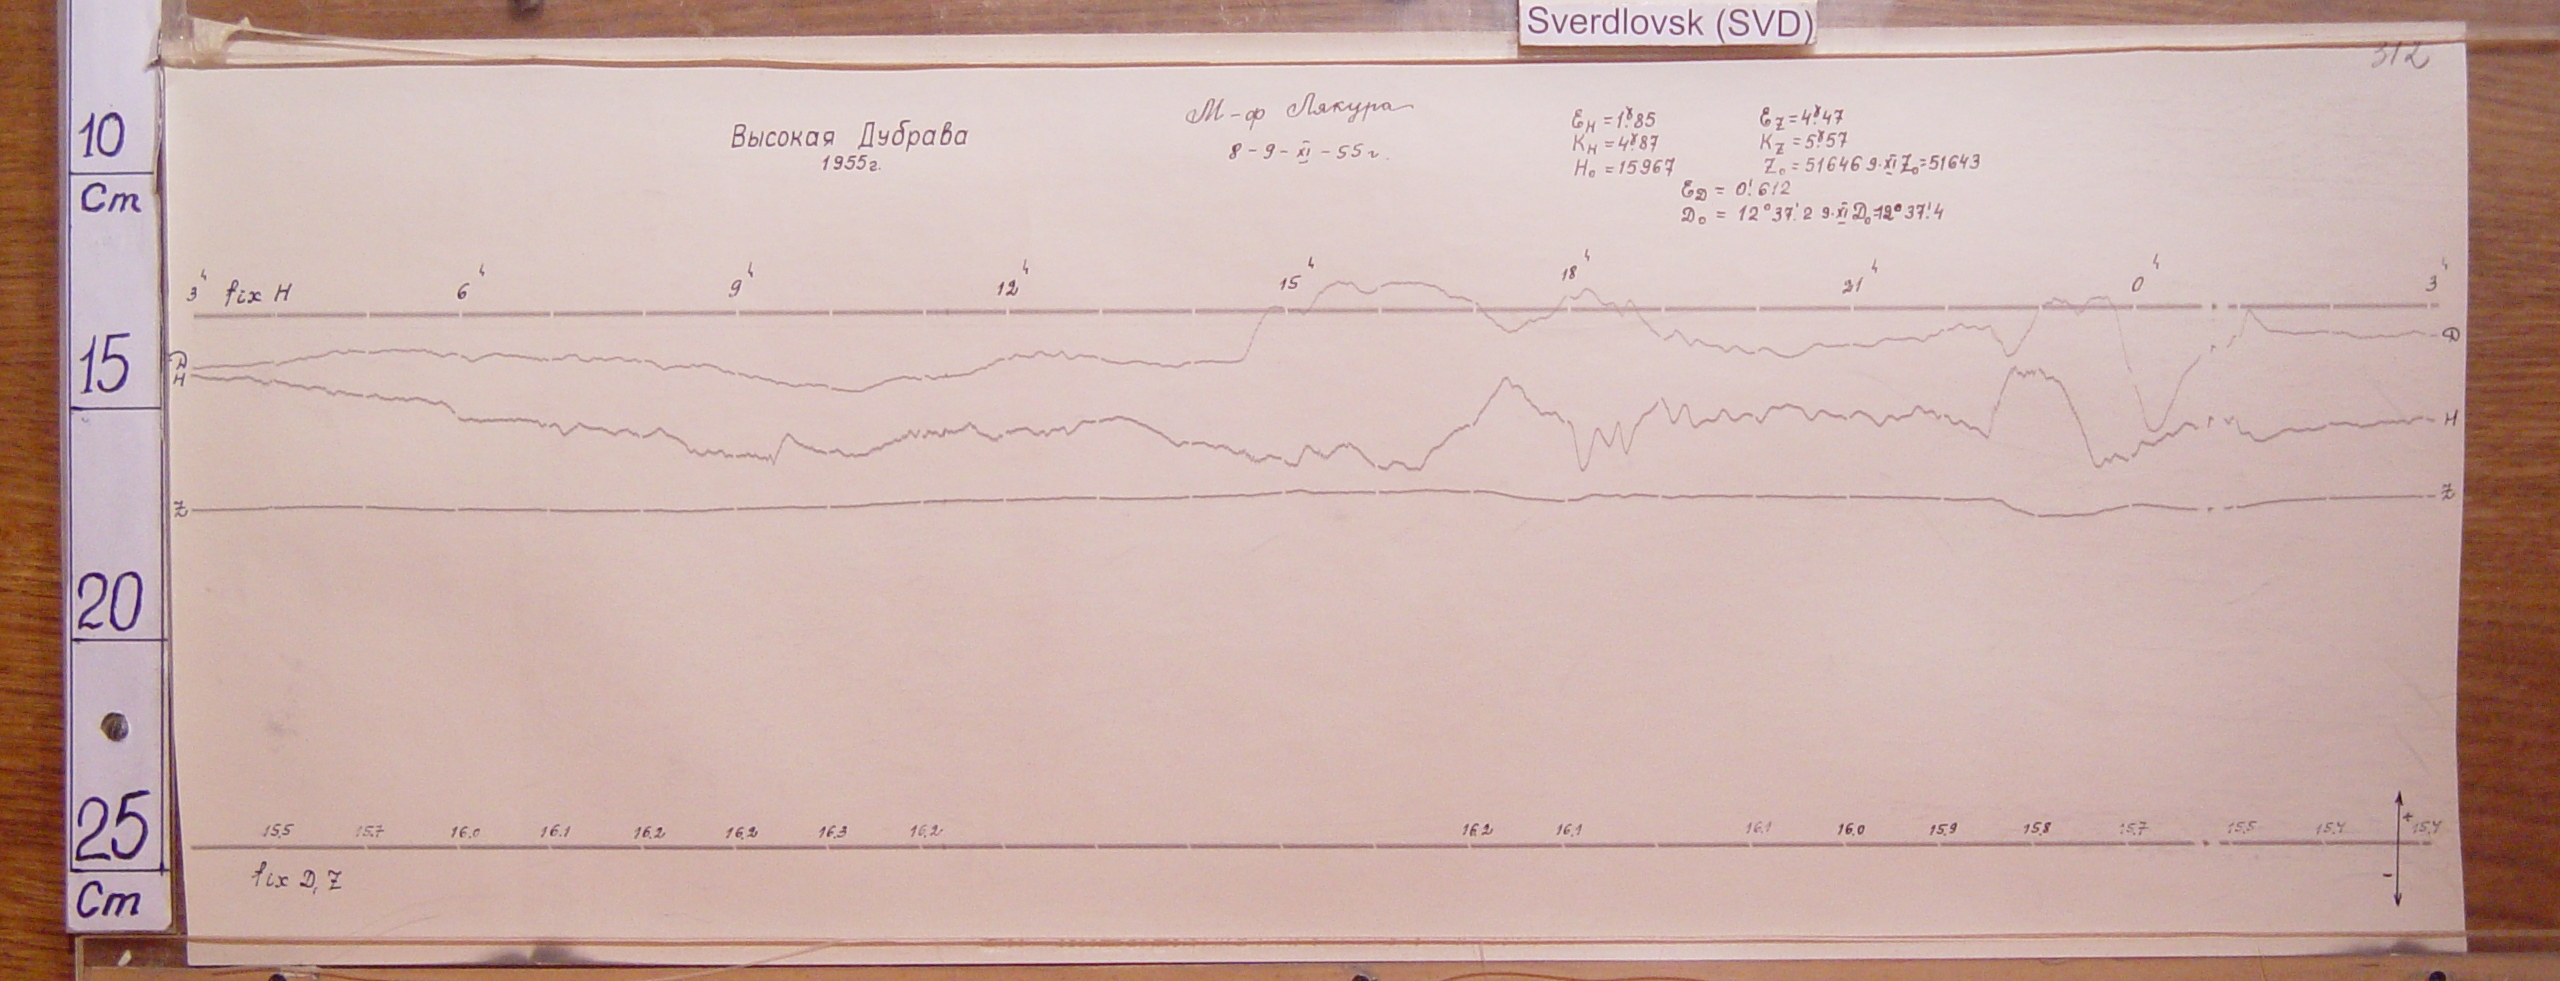 Sverdlovsk (SVD)
312
10
Cm
15
20
25
Cm
Высокая Дубрава
1955г.
М-ф Лякура
8-9-XI-55г.
Ɛн = 1ᵞ.85
Kн = 4ᵞ.87
H₀ = 15967
Ɛz = 4ᵞ.47
Kz = 5ᵞ.57
Z₀ = 51646 9.XI Z₀=51643
Ɛ𝒟 = 0'.612
D₀ = 12°37'.2 9.XI D₀=12°37'.4
3ʰ fix H 6ʰ 9ʰ 12ʰ 15ʰ 18ʰ 21ʰ 0ʰ 3ʰ
D D
H H
Z Z
15.5 15.7 16.0 16.1 16.2 16.2 16.3 16.2 16.2 16.1 16.1 16.0 15.9 15.8 15.7 15.5 15.4 15.4
+
-
fix D, Z